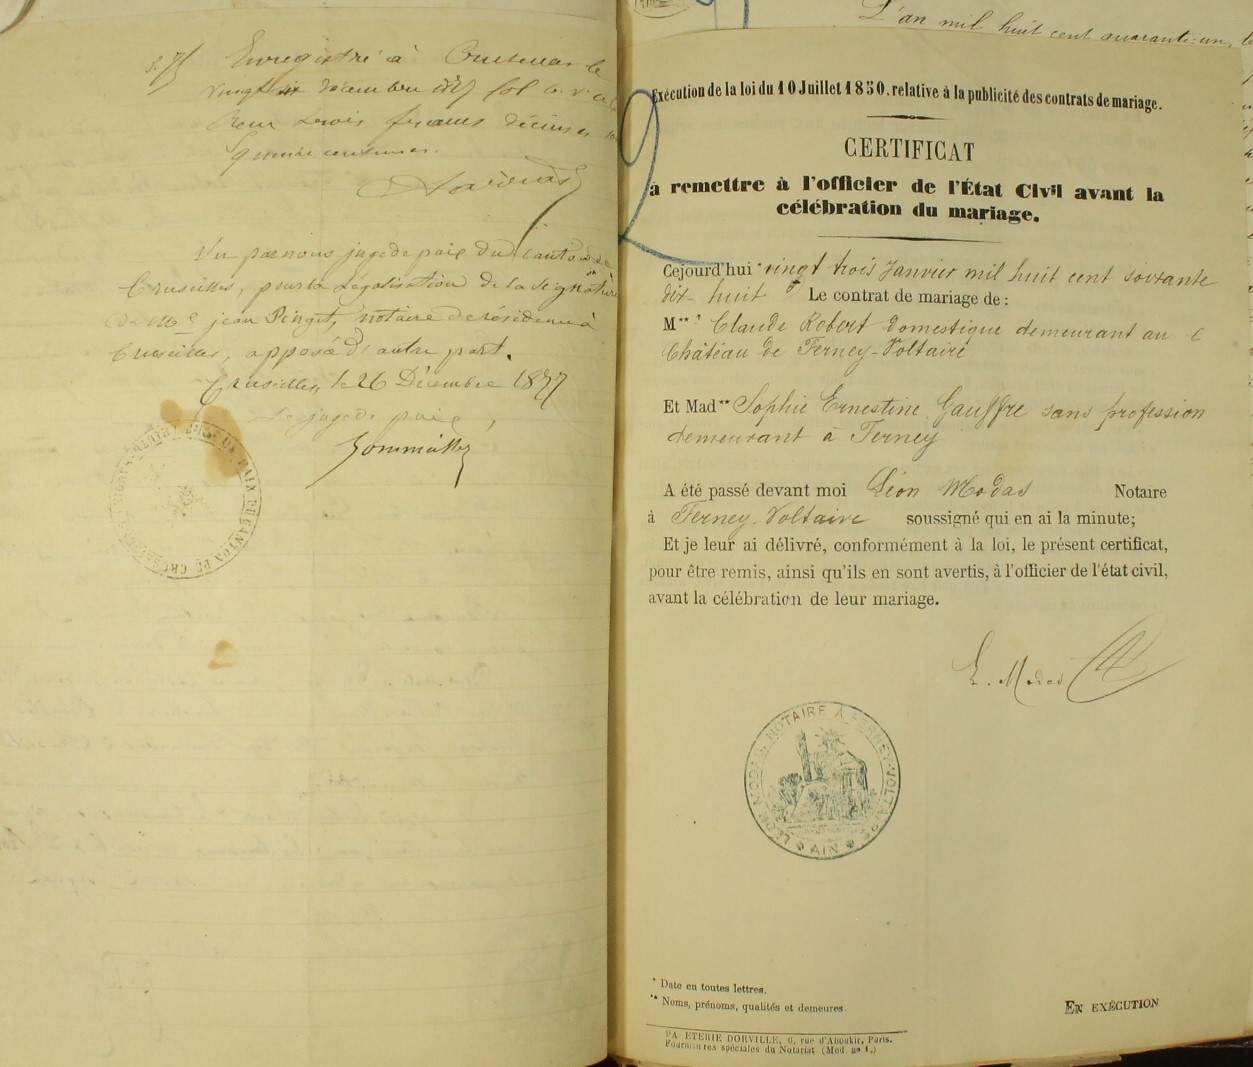 Enregistré à Cruseilles le
vingt six décembre 1877 fol
Reçu trois francs décimes
quinze centimes.
Vu par nous juge de paix du canton de
Cruseilles, pour la légalisation de la signature
de Me jean Pinget, notaire de résidence à
Cruseilles, apposée d'autre part.
Cruseilles, le 26 Décembre 1877
Le juge de paix,
JUSTICE DE PAIX DU CANTON DE CRUSEILLES
L'an mil huit cent quarante-un, le
Exécution de la loi du 10 Juillet 1850, relative à la publicité des contrats de mariage.
CERTIFICAT
à remettre à l'officier de l'État Civil avant la
célébration du mariage.
Cejourd'hui * vingt trois Janvier mil huit cent soixante
dix-huit Le contrat de mariage de :
M** Claude Robert domestique demeurant au
Château de Ferney-Voltaire
Et Mad** Sophie Ernestine Gauffre sans profession
demeurant à Ferney
A été passé devant moi Léon Modas Notaire
à Ferney-Voltaire soussigné qui en ai la minute;
Et je leur ai délivré, conformément à la loi, le présent certificat,
pour être remis, ainsi qu'ils en sont avertis, à l'officier de l'état civil,
avant la célébration de leur mariage.
L. Modas
LÉON MODAS NOTAIRE À FERNEY-VOLTAIRE
AIN
* Date en toutes lettres.
** Noms, prénoms, qualités et demeures.
EN EXÉCUTION
PAPETERIE DORVILLE, 6, rue d'Aboukir, Paris.
Fournitures spéciales du Notariat (Mod. no 1.)